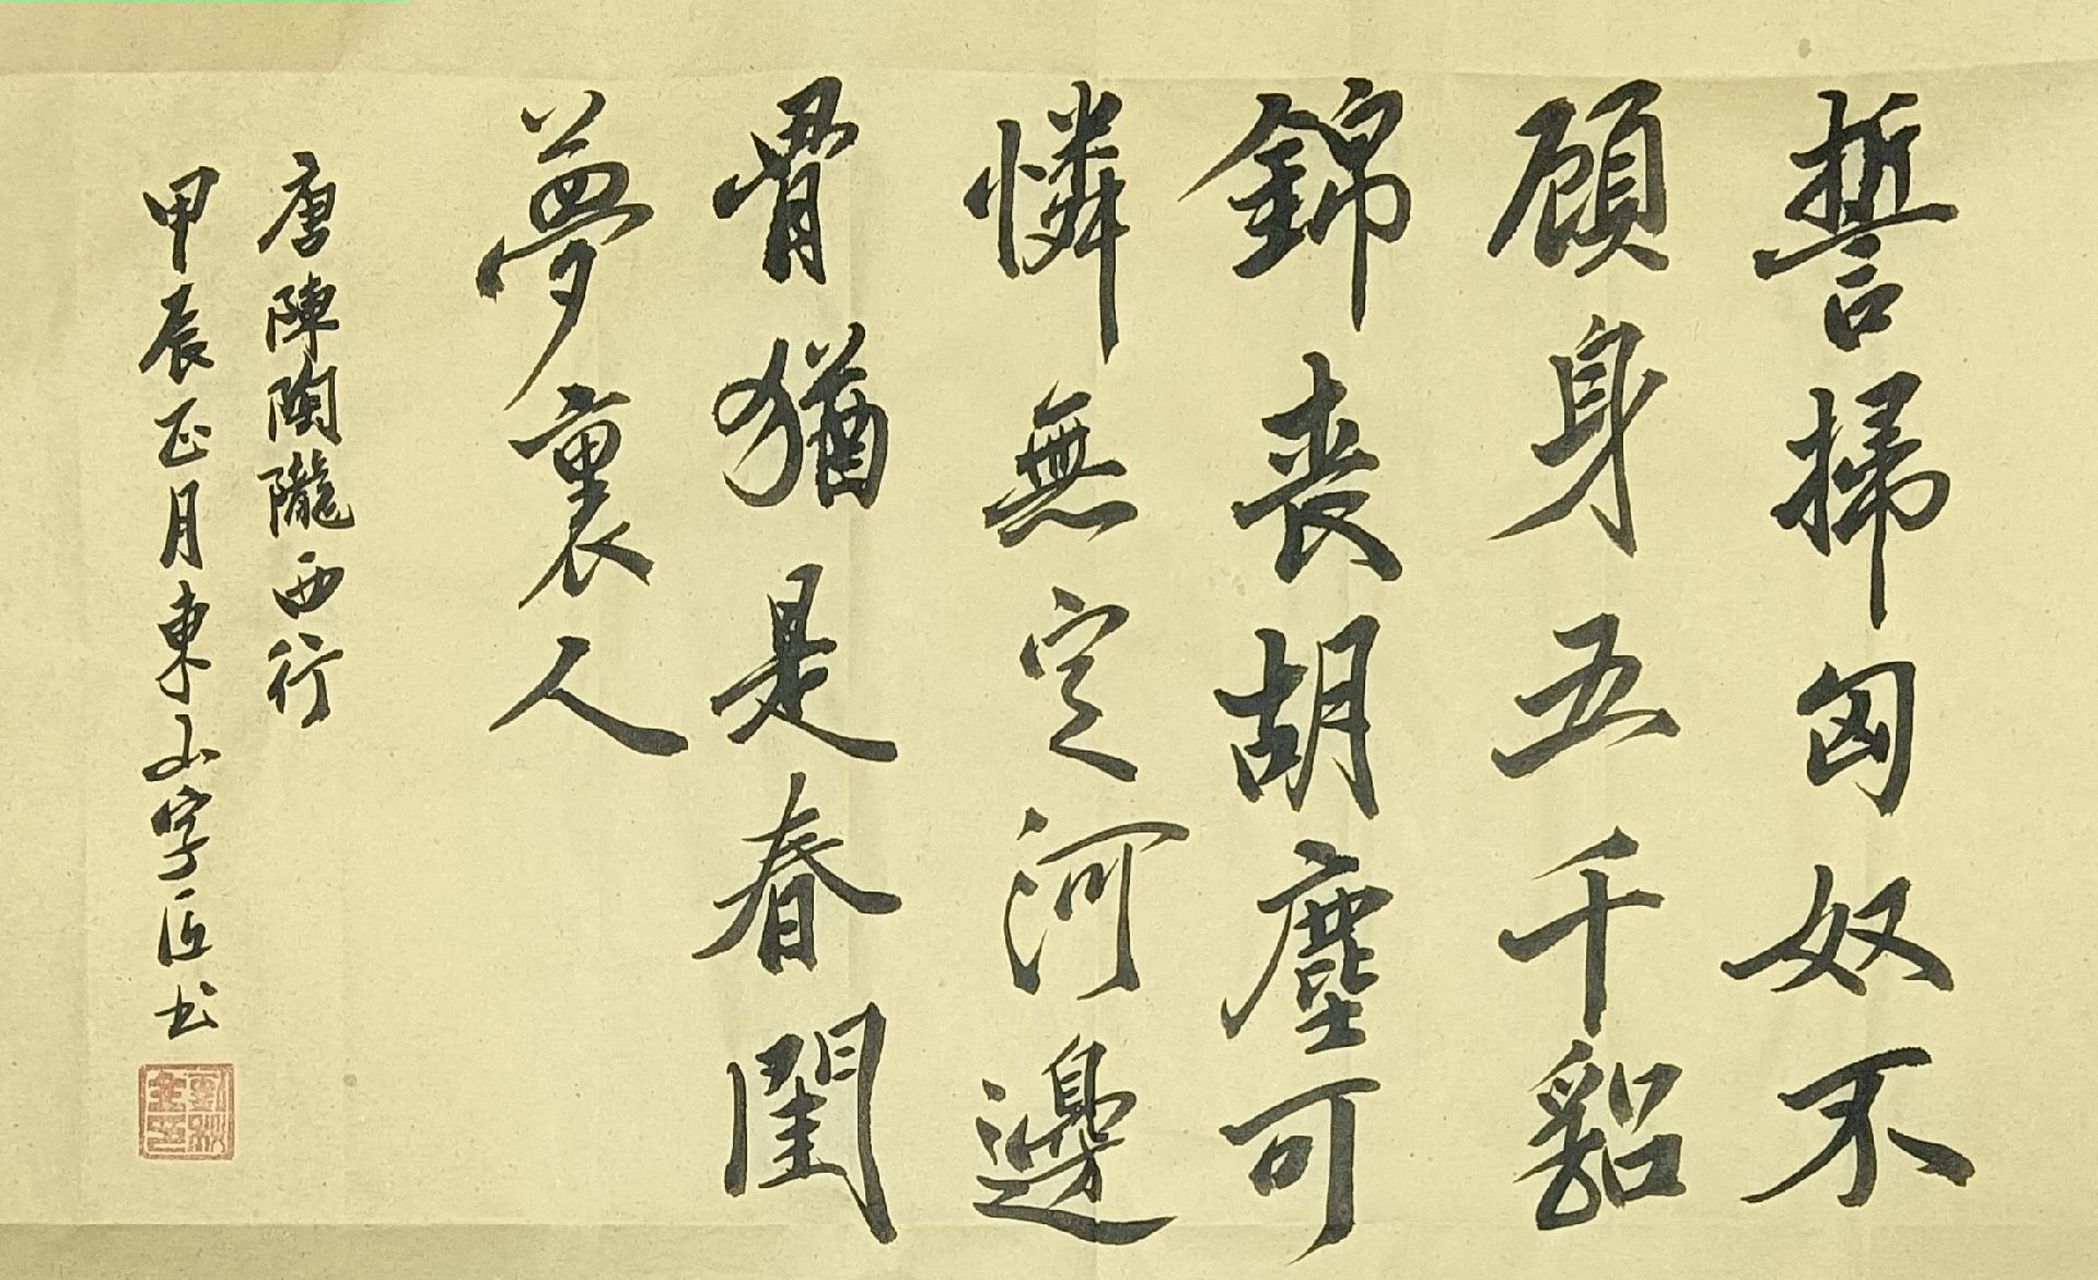 誓掃匈奴不
顧身五千貂
錦喪胡塵可
憐無定河邊
骨猶是春閨
夢裏人
唐陳陶隴西行
甲辰正月東山字匠书